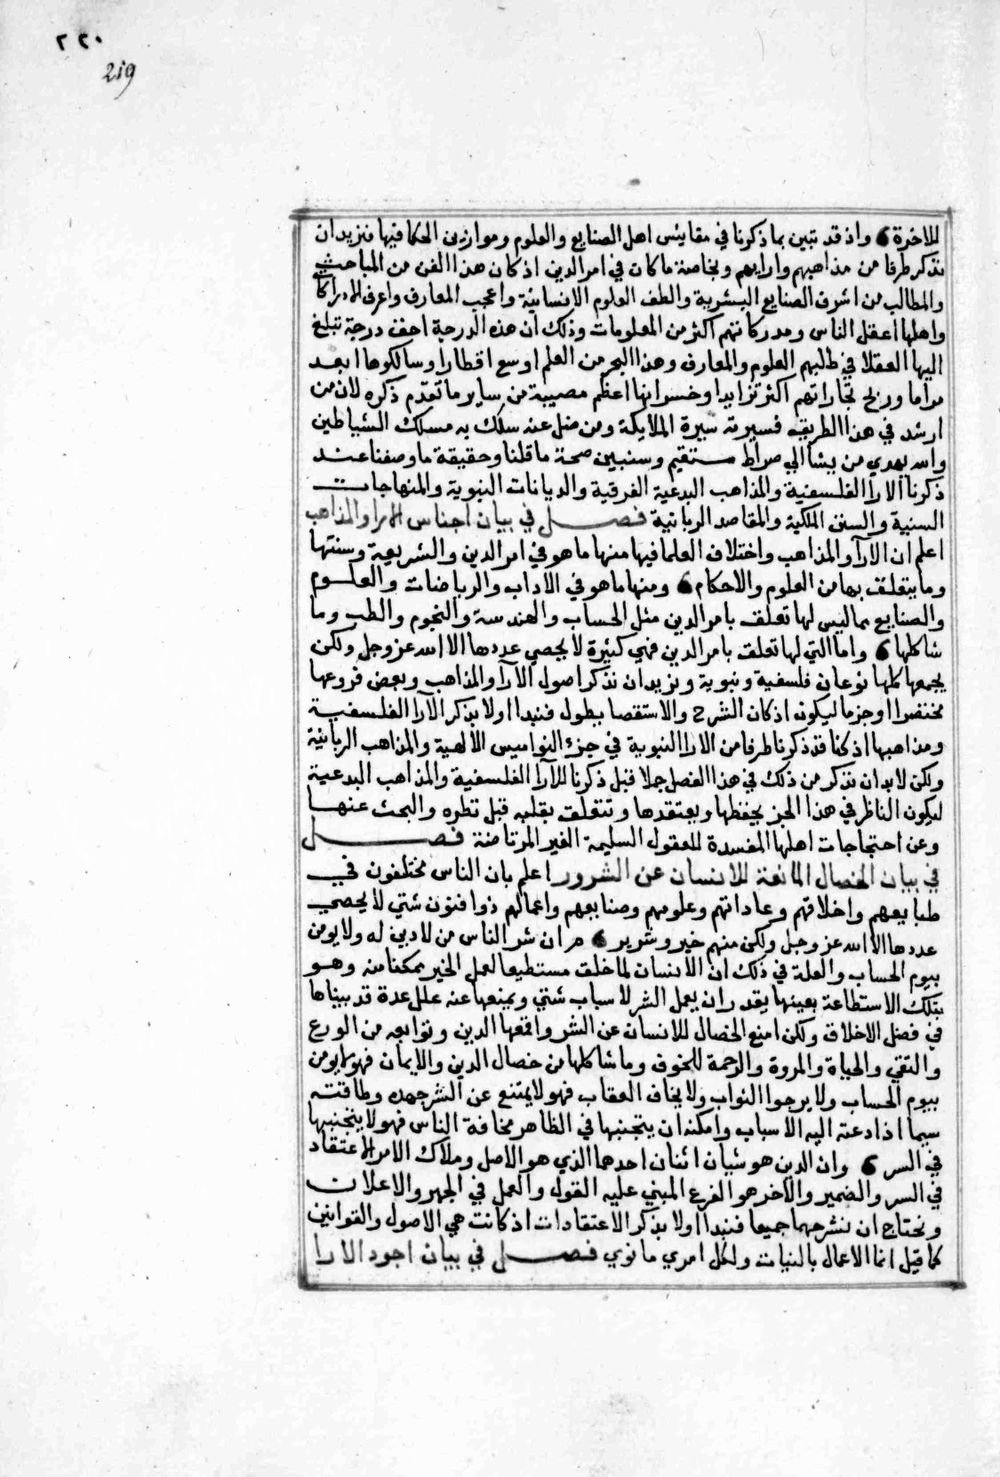 ٢٢٠
219
للاخرة ۞ واذ قد تبين بما ذكرنا في مقاييس اهل الصنايع والعلوم وموازين الحكما فيها فنريد ان
نذكر طرفا من مذاهبهم وارايهم وبخاصة ما كان في امر الدين اذ كان هذا الفن من المباحث
والمطالب من اشرف الصنايع البشرية والطف العلوم الانسانية واعجب المعارف واعرف الادراكا
واهلها اعقل الناس ومدركاتهم اكثر من المعلومات وذلك ان هذه الدرجة اخف درجة تبلغ
اليها العقلا في طلبهم العلوم والمعارف وهذا البحر من العلم اوسع اقطارا وسالكوها ابعد
مراما وربح تجاراتهم اكثر تزايدا وخسرانها اعظم مصيبة من ساير ما تقدم ذكره لان من
ارشد في هذا الطريق فسيرته سيرة الملايكة ومن ضل عنه سلك به مسلك الشياطين
والله يهدي من يشا الي صراط مستقيم وسنبين صحة ما قلنا وحقيقة ما وصفنا عند
ذكرنا الارا الفلسفية والمذاهب البدعية الفرقية والديانات النبوية والمنهاجات
السنية والسنن الملكية والمقاصد الربانية فصل في بيان اجناس الارا والمذاهب
اعلم ان الارآ والمذاهب واختلاف العلما فيها منها ما هو في امر الدين والشريعة وسنتها
وما يتعلق بها من العلوم والاحكام ۞ ومنها ما هو في الاداب والرياضات والعلوم
والصنايع مما ليس لها تعلق بامر الدين مثل الحساب والهندسة والنجوم والطب وما
شاكلها ۞ واما التي لها تعلق بامر الدين فهي كثيرة لا يحصي عددها الا الله عز وجل ولكن
يجمعها كلها نوعان فلسفية ونبوية ونريد ان نذكر اصول الارآ والمذاهب وبعض فروعها
مختصرا اوجز ما يكون اذ كان الشرح والاستقصا يطول فنبدا اولا بذكر الارآ الفلسفية
ومذاهبها اذ كنا قد ذكرنا طرفا من الارا النبوية في جزء النواميس الالهية والمذاهب الربانية
ولكن لا بد ان نذكر من ذلك في هذا الفصل جملا قبل ذكرنا للارآ الفلسفية والمذاهب البدعية
ليكون الناظر في هذا الجز يحفظها ويعتقدها وتتعلق بقلبه قبل نظره والبحث عنها
وعن احتجاجات اهلها المفسدة للعقول السليمة الغير المرتاضة فصل
في بيان الخصال المانعة للانسان عن الشرور اعلم بان الناس مختلفون في
طبايعهم واخلاقهم وعاداتهم وعلومهم وصنايعهم واعمالهم ذوا فنون شتي لا يحصي
عددها الا الله عز وجل ولكن منهم خير وشرير ۞ ثم ان شر الناس من لا دين له ولا يومن
بيوم الحساب والعلة في ذلك ان الانسان لما خلق مستطيعا لعمل الخير ممكنا منه وهو
بتلك الاستطاعة بعينها يقدر ان يعمل الشر لاسباب شتي ويمنعها عنه علل عدة قد بيناها
في فصل الاخلاق ولكن امنع الخصال للانسان عن الشر واقمعها الدين وتوابعه من الورع
والتقي والحياة والمروة والرحمة للخوف وما شاكلها من خصال الدين والايمان فهو لا يومن
بيوم الحساب ولا يرجوا الثواب ولا يخاف العقاب فهو لا يمتنع عن الشر جهده وطاقته
سيما اذا دعته اليه الاسباب وامكنه ان يتجنبها في الظاهر مخافة الناس فهو لا يتجنبها
في السر ۞ وان الدين هو شيان اثنان احدهما الذي هو الاصل وملاك الامر الاعتقاد
في السر والضمير والاخر هو الفرع المبني عليه القول والعمل في الجهر والاعلان
ونحتاج ان نشرحهما جميعا فنبدا اولا بذكر الاعتقادات اذ كانت هي الاصول والقوانين
كما قيل انما الاعمال بالنيات ولكل امري ما نوي فصل في بيان اجود الارا